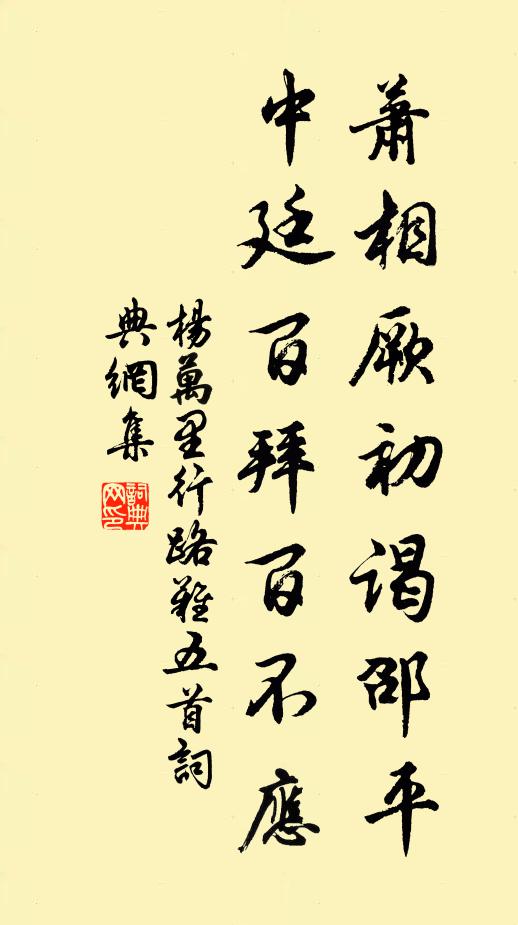 蕭相厥初謁邵平
中廷百拜百不應
楊萬里行路難五首詞
典網集
詞典
网印